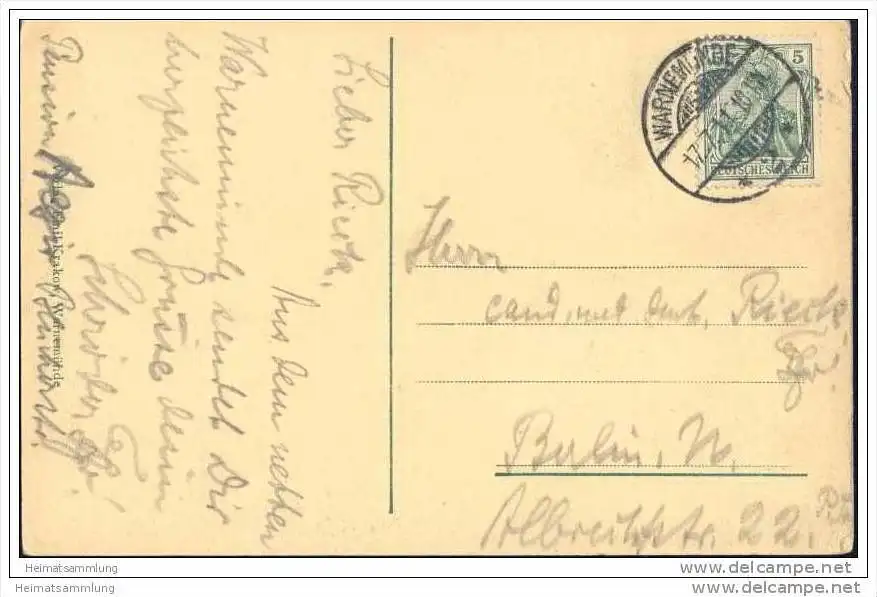 Lieber Rieck,
Aus dem netten
Warnemünde sendet Dir
herzlichste Grüsse Dein
Schröder
Pension
Emil Krakow, Warnemünde
WARNEMÜNDE
17.7.11.
5
DEUTSCHES REICH
Herrn
cand. med. dent. Rieck
Berlin, N.
Albrechtstr. 22.
Heimatsammlung
Heimatsammlung
www.delcampe.net
www.delcampe.net